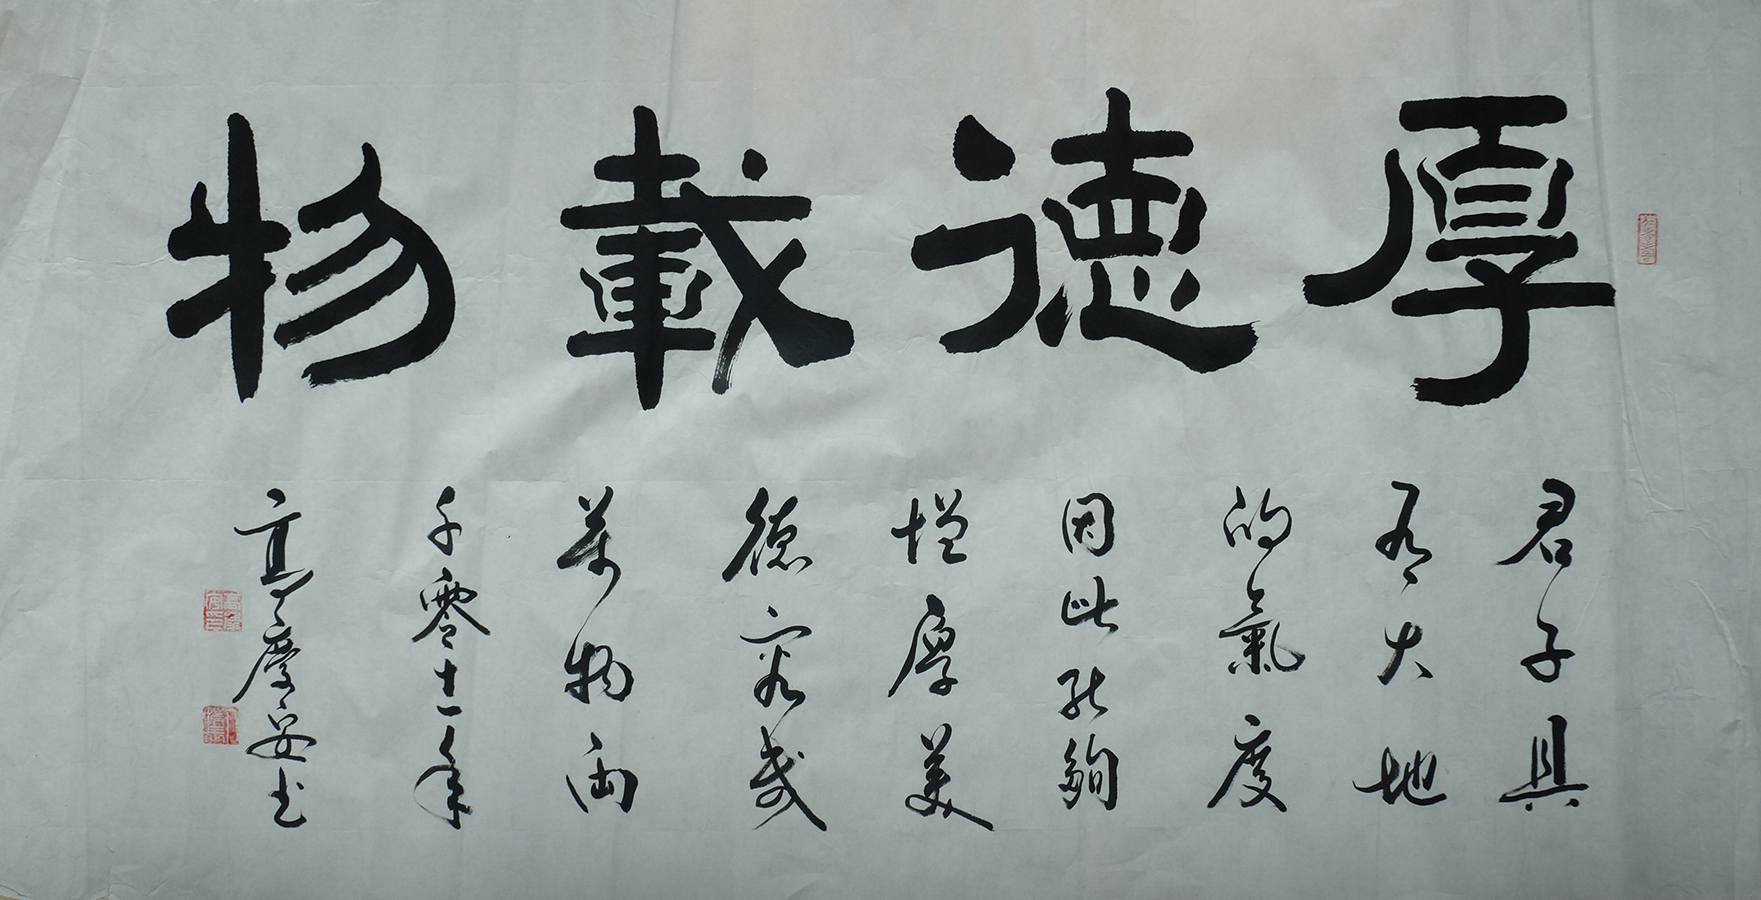 厚德載物
君子具
有大地
的氣度
因此能夠
增厚美
德容載
萬物兩
千零十一年
高慶安書